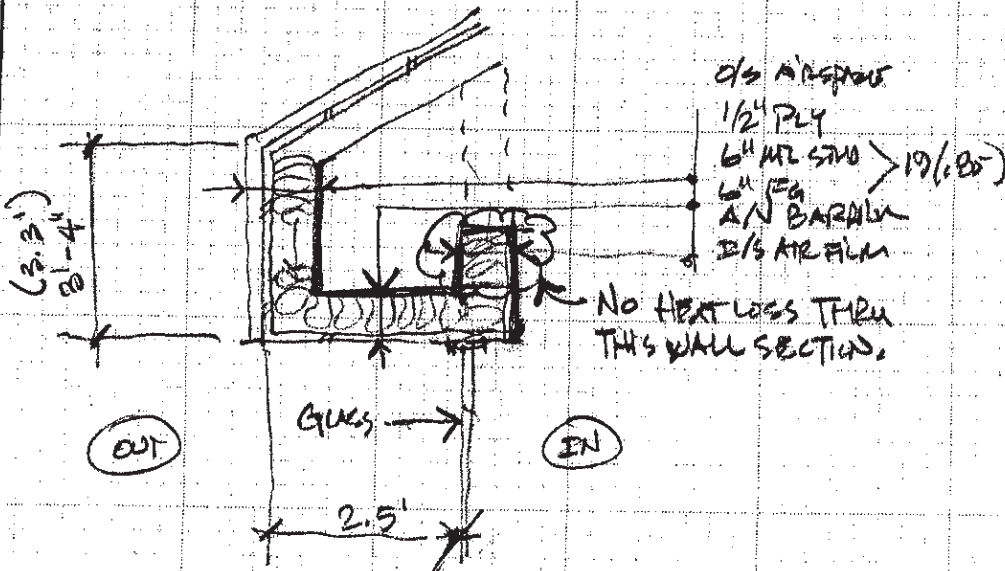 O/S AIRSPACE
1/2" PLY
6" MTL STUD
6" FG
19(.85)
A/V BARRIER
I/S AIR FILM
(3.3')
3'-4"
NO HEAT LOSS THRU
THIS WALL SECTION.
GLASS
OUT
IN
2.5'